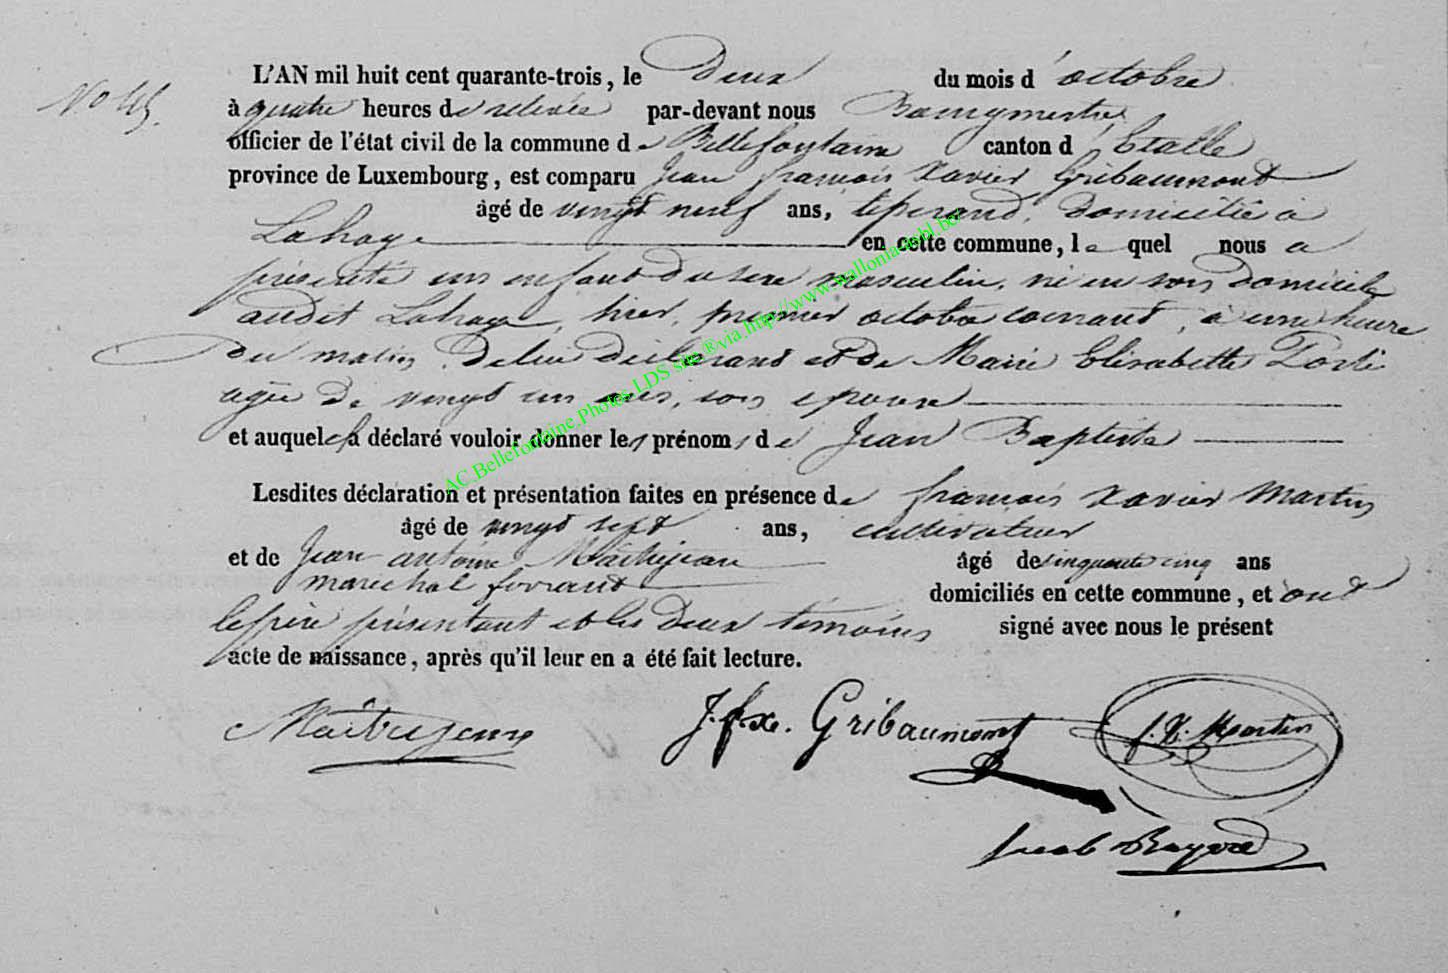 L'AN mil huit cent quarante-trois, le deux du mois d'octobre
No 45.
à quatre heures de relevée par-devant nous Bourgmestre,
officier de l'état civil de la commune de Bellefontaine canton d'Etalle
province de Luxembourg, est comparu Jean françois Xavier Gribaumont
âgé de vingt neuf ans, domicilié à
Lahage en cette commune, lequel nous a
présenté un enfant du sexe masculin, né en son domicile
audit Lahage, hier, premier octobre courant, à une heure
du matin, de lui déclarant et de Marie Elisabette
agée de vingt un ans, son epouse
et auquel il a déclaré vouloir donner les prénoms de Jean Baptiste
Lesdites déclaration et présentation faites en présence de françois Xavier Martin
âgé de vingt sept ans, cultivateur
et de Jean antoine Maitrejean âgé de cinquante cinq ans
maréchal ferrant domiciliés en cette commune, et ont
le père présentant et les deux témoins signé avec nous le présent
acte de naissance, après qu'il leur en a été fait lecture.
Maitrejean J. f. xe. Gribaumont f. X. Martin
AC.Bellefontaine.Photos LDS site ®via.http://www.wallonia-asbl.be/